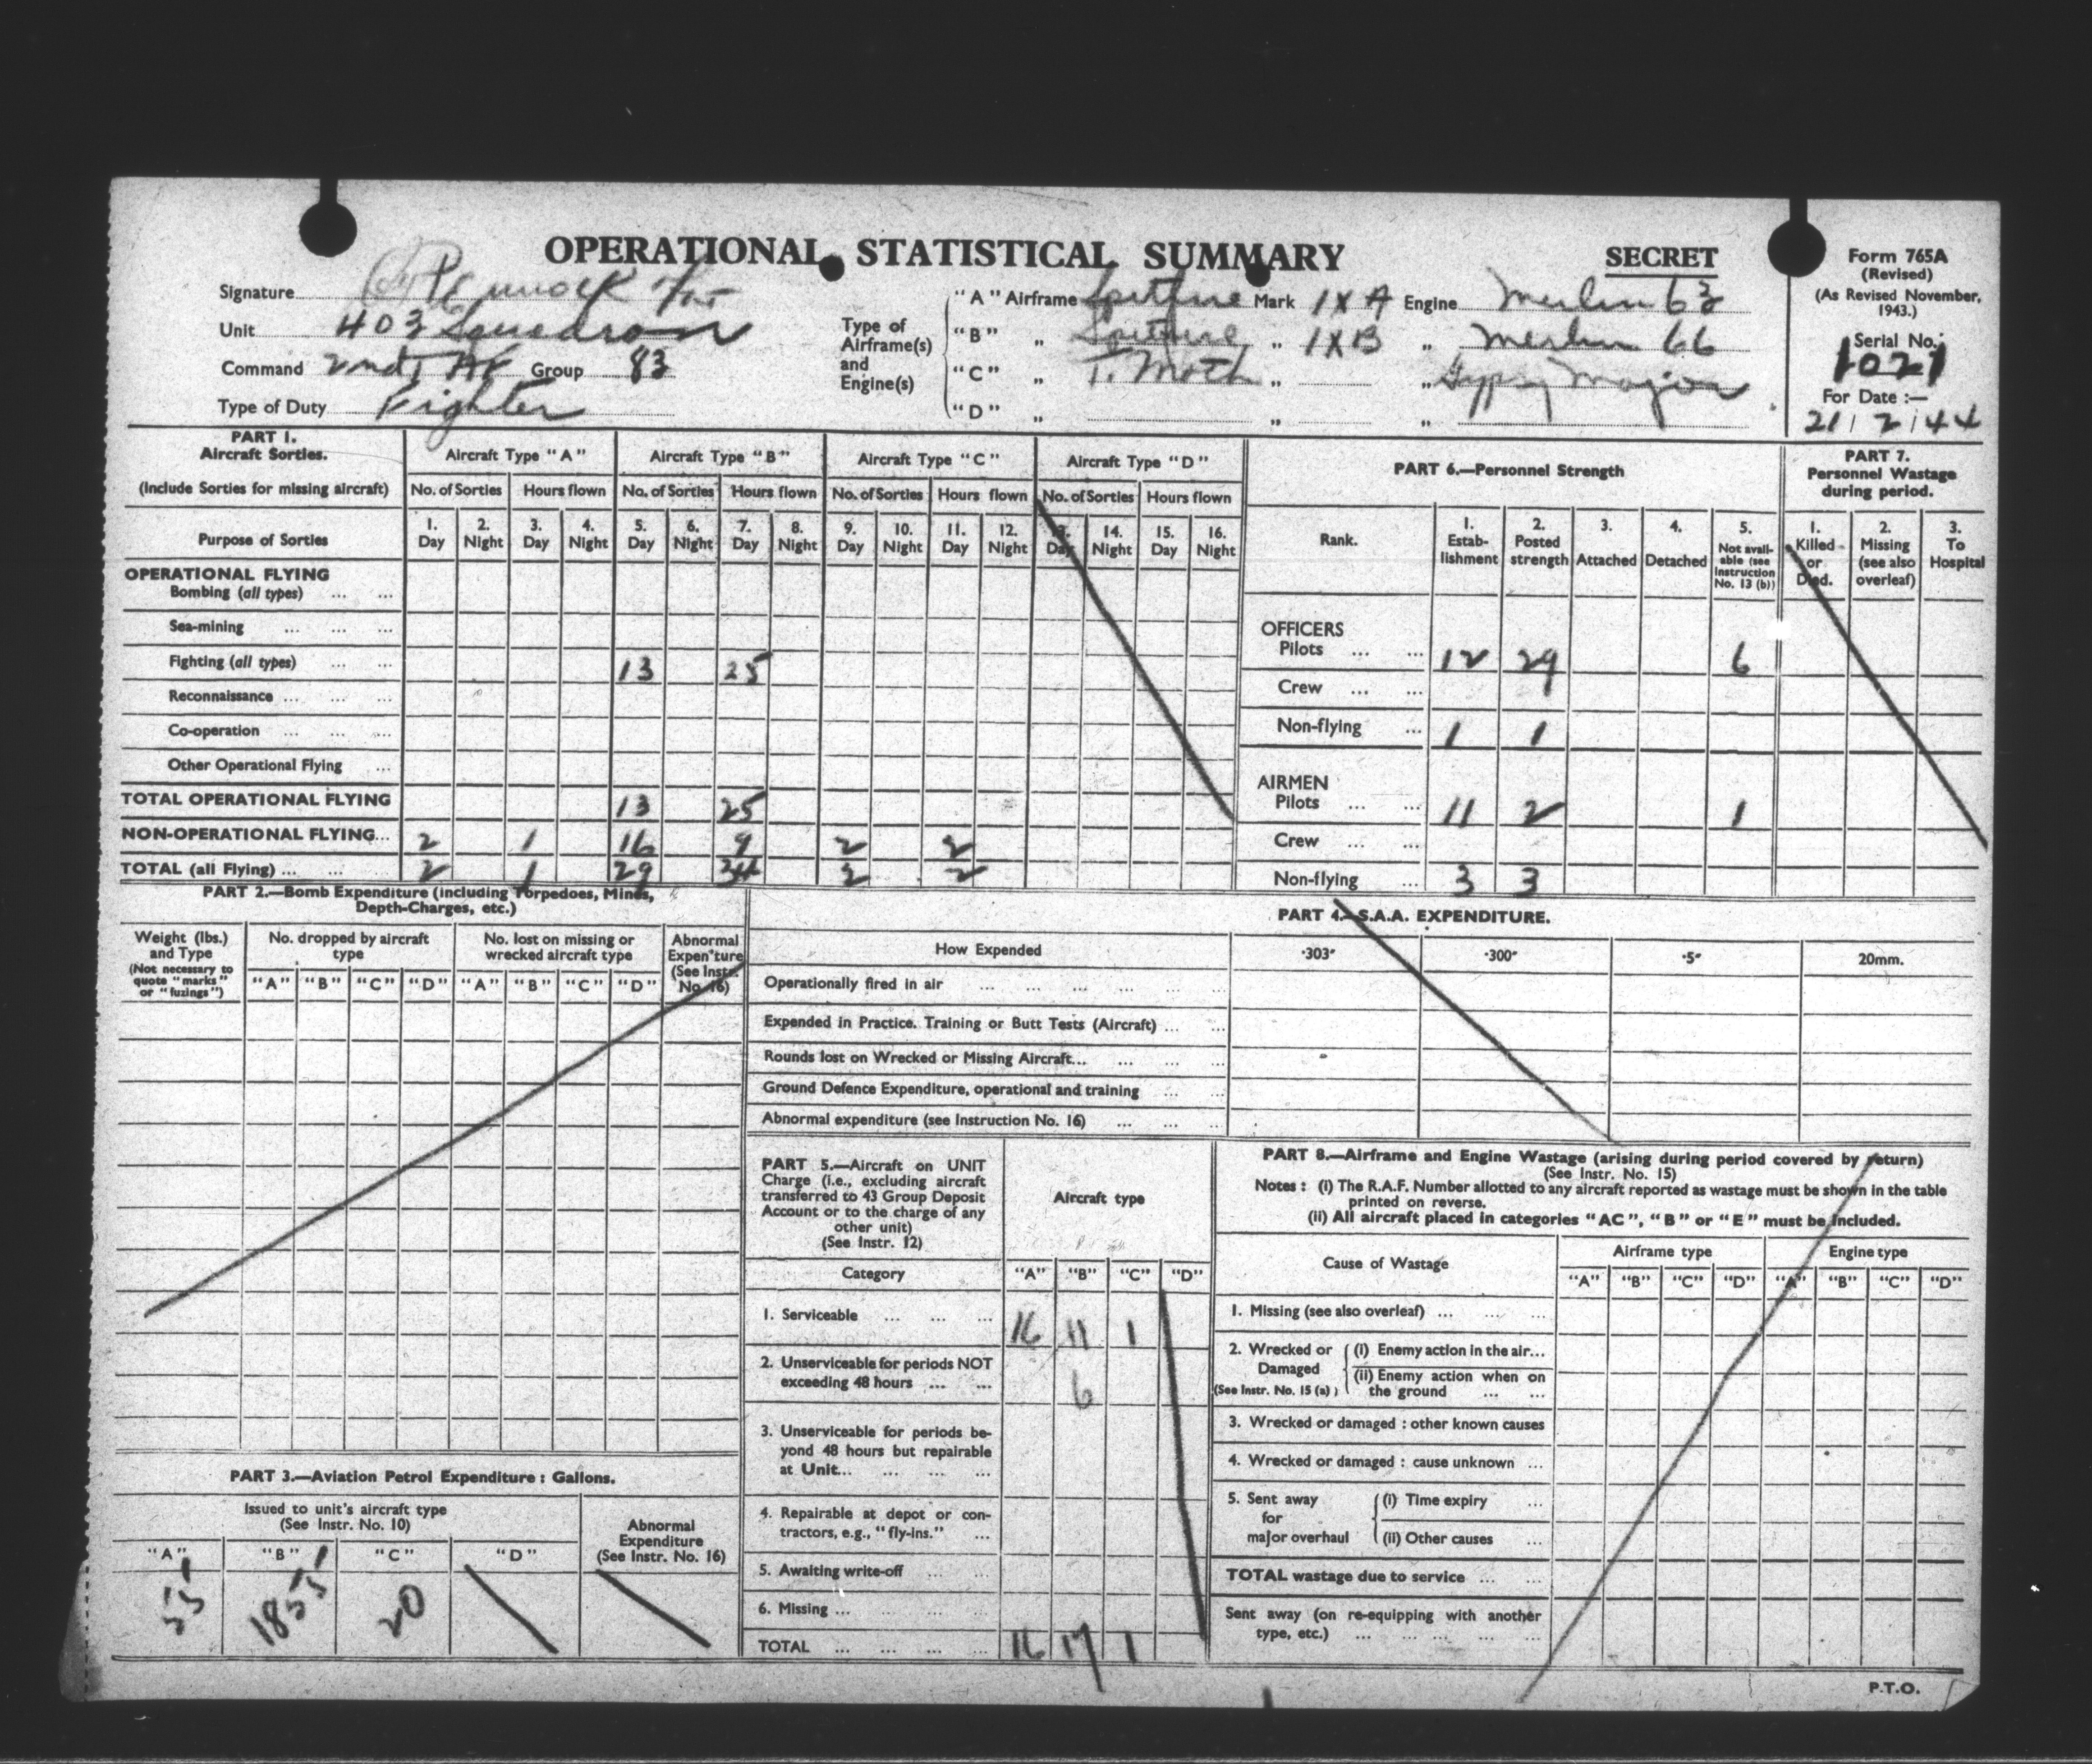 OPERATIONAL STATISTICAL SUMMARY
SECRET
Form 765A
(Revised)
(As Revised November, 1943.)
Serial No.:
1021
For Date :—
21/2/44
Signature
Unit 403 Squadron
Command 2nd T AF Group 83
Type of Duty Fighter
Type of Airframe(s) and Engine(s)
"A" Airframe Spitfire Mark IXA Engine Merlin 63
"B" „ Spitfire „ IXB „ Merlin 66
"C" „ T. Moth „ „ Gypsy Major
"D" „ „ „
PART 1.
Aircraft Sorties.
(Include Sorties for missing aircraft)
Aircraft Type "A" Aircraft Type "B" Aircraft Type "C" Aircraft Type "D"
No. of Sorties Hours flown No. of Sorties Hours flown No. of Sorties Hours flown No. of Sorties Hours flown
Purpose of Sorties
1. Day 2. Night 3. Day 4. Night 5. Day 6. Night 7. Day 8. Night 9. Day 10. Night 11. Day 12. Night 13. Day 14. Night 15. Day 16. Night
OPERATIONAL FLYING
Bombing (all types) ... ...
Sea-mining ... ... ...
Fighting (all types) ... ... 13 25
Reconnaissance ... ... ...
Co-operation ... ... ...
Other Operational Flying ...
TOTAL OPERATIONAL FLYING 13 25
NON-OPERATIONAL FLYING... 2 1 16 9 2 2
TOTAL (all Flying) ... ... ... 2 1 29 34 2 2
PART 6.—Personnel Strength
Rank.
1. Estab-lishment
2. Posted strength
3. Attached
4. Detached
5. Not avail-able (see Instruction No. 13 (b))
OFFICERS
Pilots ... ... 12 29 6
Crew ... ...
Non-flying ... 1 1
AIRMEN
Pilots ... ... 11 2 1
Crew ... ...
Non-flying ... 3 3
PART 7.
Personnel Wastage during period.
1. Killed or Died.
2. Missing (see also overleaf)
3. To Hospital
PART 2.—Bomb Expenditure (including Torpedoes, Mines, Depth-Charges, etc.)
Weight (lbs.) and Type
(Not necessary to quote "marks" or "fuzings")
No. dropped by aircraft type
No. lost on missing or wrecked aircraft type
Abnormal Expen'ture (See Instr. No. 16)
"A" "B" "C" "D" "A" "B" "C" "D"
PART 4.—S.A.A. EXPENDITURE.
How Expended ·303" ·300" ·5" 20mm.
Operationally fired in air ... ... ... ... ... ...
Expended in Practice. Training or Butt Tests (Aircraft) ... ...
Rounds lost on Wrecked or Missing Aircraft... ... ... ...
Ground Defence Expenditure, operational and training ... ...
Abnormal expenditure (see Instruction No. 16) ... ... ...
PART 5.—Aircraft on UNIT Charge (i.e., excluding aircraft transferred to 43 Group Deposit Account or to the charge of any other unit)
(See Instr. 12)
Aircraft type
Category "A" "B" "C" "D"
1. Serviceable ... ... ... 16 11 1
2. Unserviceable for periods NOT exceeding 48 hours ... ... 6
3. Unserviceable for periods be-yond 48 hours but repairable at Unit... ... ... ...
4. Repairable at depot or con-tractors, e.g., "fly-ins." ...
5. Awaiting write-off ... ...
6. Missing ... ... ... ...
TOTAL ... ... ... ... 16 17 1
PART 8.—Airframe and Engine Wastage (arising during period covered by return)
(See Instr. No. 15)
Notes : (i) The R.A.F. Number allotted to any aircraft reported as wastage must be shown in the table printed on reverse.
(ii) All aircraft placed in categories "AC", "B" or "E" must be included.
Cause of Wastage
Airframe type Engine type
"A" "B" "C" "D" "A" "B" "C" "D"
1. Missing (see also overleaf) ... ... ...
2. Wrecked or Damaged (See Instr. No. 15 (a))
(i) Enemy action in the air...
(ii) Enemy action when on the ground ... ...
3. Wrecked or damaged : other known causes
4. Wrecked or damaged : cause unknown ...
5. Sent away for major overhaul
(i) Time expiry ...
(ii) Other causes ...
TOTAL wastage due to service ... ...
Sent away (on re-equipping with another type, etc.) ... ... ... ... ...
PART 3.—Aviation Petrol Expenditure : Gallons.
Issued to unit's aircraft type
(See Instr. No. 10)
Abnormal Expenditure
(See Instr. No. 16)
"A" "B" "C" "D"
55 1855 20
P.T.O.